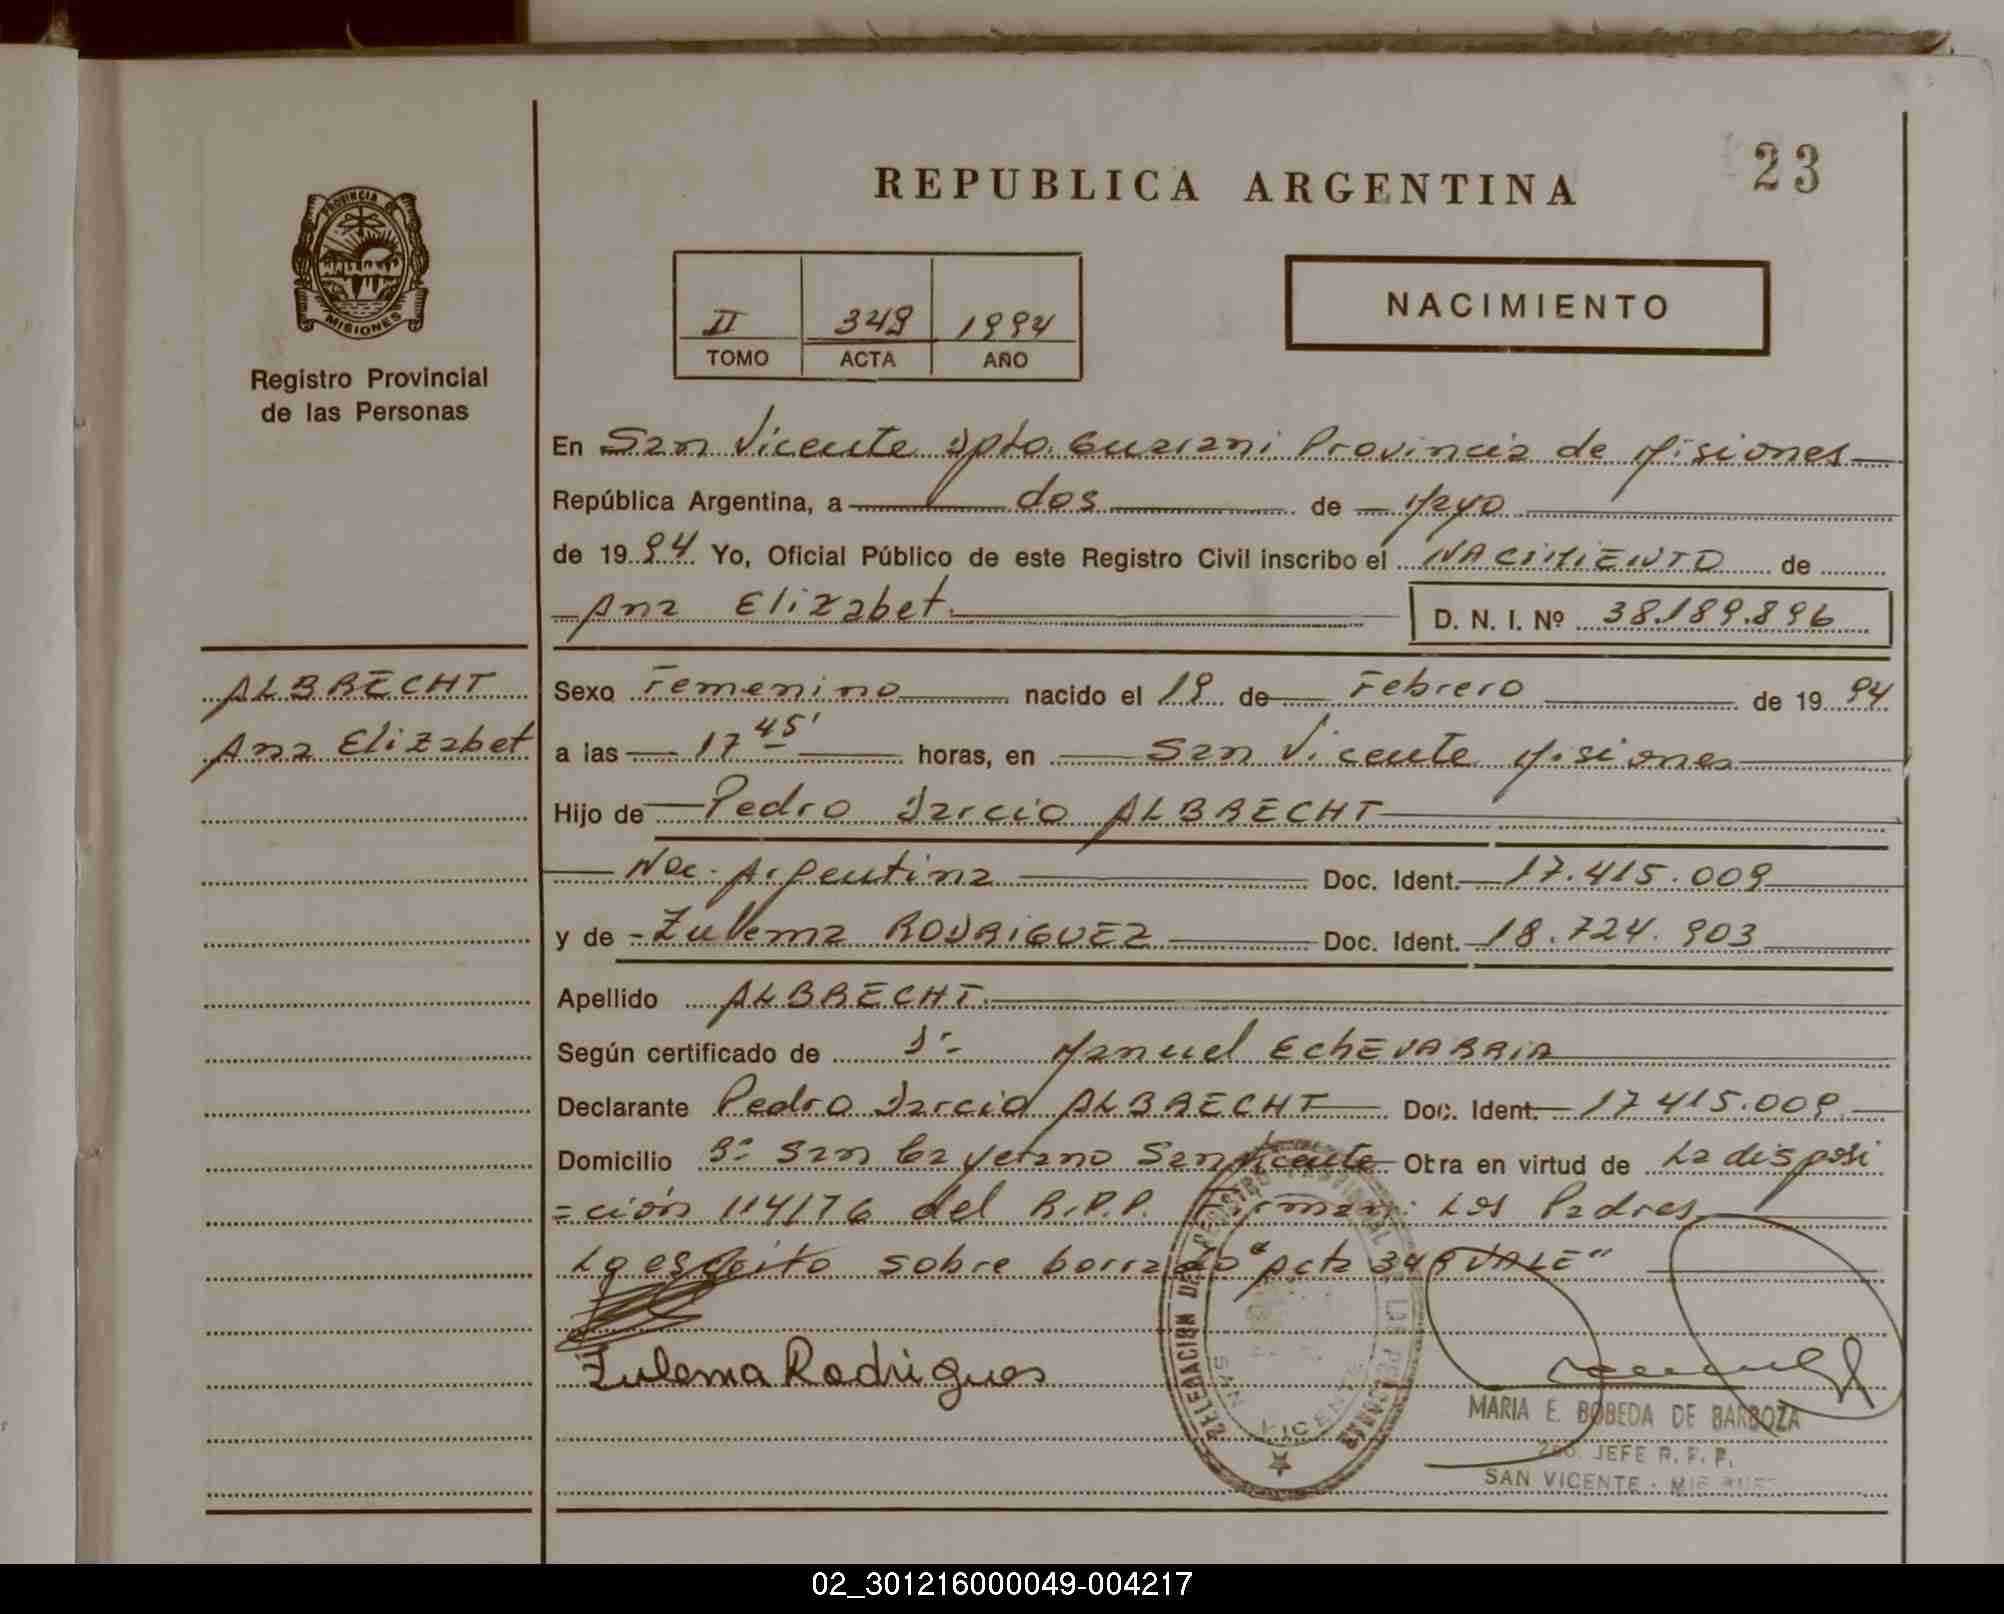 23
REPUBLICA ARGENTINA
PROVINCIA DE
MISIONES
Registro Provincial
de las Personas
II 349 1994
TOMO ACTA AÑO
NACIMIENTO
En San Vicente Dpto. Guarani Provincia de Misiones
República Argentina, a dos de Mayo
de 1994 Yo, Oficial Público de este Registro Civil inscribo el NACIMIENTO de
Ana Elizabet. D. N. I. Nº 38.189.896
ALBRECHT
Ana Elizabet
Sexo Femenino nacido el 19 de Febrero de 1994
a las 17 45' horas, en San Vicente Misiones
Hijo de Pedro Darcio ALBRECHT
Nac. Argentina Doc. Ident. 17.415.009
y de Zulema RODRIGUEZ Doc. Ident. 18.724.903
Apellido ALBRECHT.
Según certificado de Dr. Manuel EchEVARRIA
Declarante Pedro Darcio ALBRECHT Doc. Ident. 17415.009
Domicilio Bº San Cayetano San Vicente Obra en virtud de La disposi
=ción 114/76 del R.P.P. Firman: Los Padres
Lo escrito sobre borrado "Acta 349 VALE"
Zulema Rodrigues
DELEGACION DEL REGISTRO PROVINCIAL DE LAS PERSONAS
SAN VICENTE
MARIA E. BOBEDA DE BARBOZA
2do. JEFE R. P. P.
SAN VICENTE - MISIONES
02_301216000049-004217